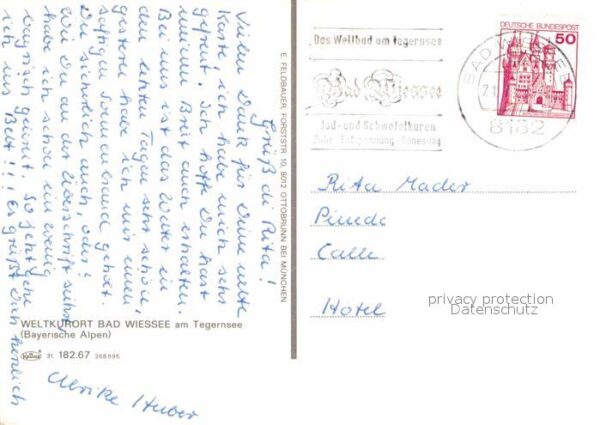 Grüß di Rita!
Vielen Dank für Deine nette
Karte, ich habe mich sehr
gefreut. Ich hoffe Du hast
meinen Brief auch erhalten.
Bei uns ist das Wetter in
den letzten Tagen sehr schön,
gestern habe ich mir einen
saftigen Sonnenbrand geholt.
Du sicherlich auch, oder?
Wie Du an der Überschrift siehst,
habe ich schon ein wenig
bayrisch gelernt. So jetzt gehe
ich ins Bett!!! Es grüßt Dich herzlich
Ulrike Huber
E. FELDBAUER, FORSTSTR. 10, 8012 OTTOBRUNN BEI MÜNCHEN
WELTKURORT BAD WIESSEE am Tegernsee
(Bayerische Alpen)
31. 182.67 268595
Das Weltbad am Tegernsee
Bad Wiessee
Jod- und Schwefelkuren
Ruhe · Entspannung · Genesung
BAD WIESSEE
8182
DEUTSCHE BUNDESPOST
50
Rita Mader
Pineda
Calle
Hotel
privacy protection
Datenschutz